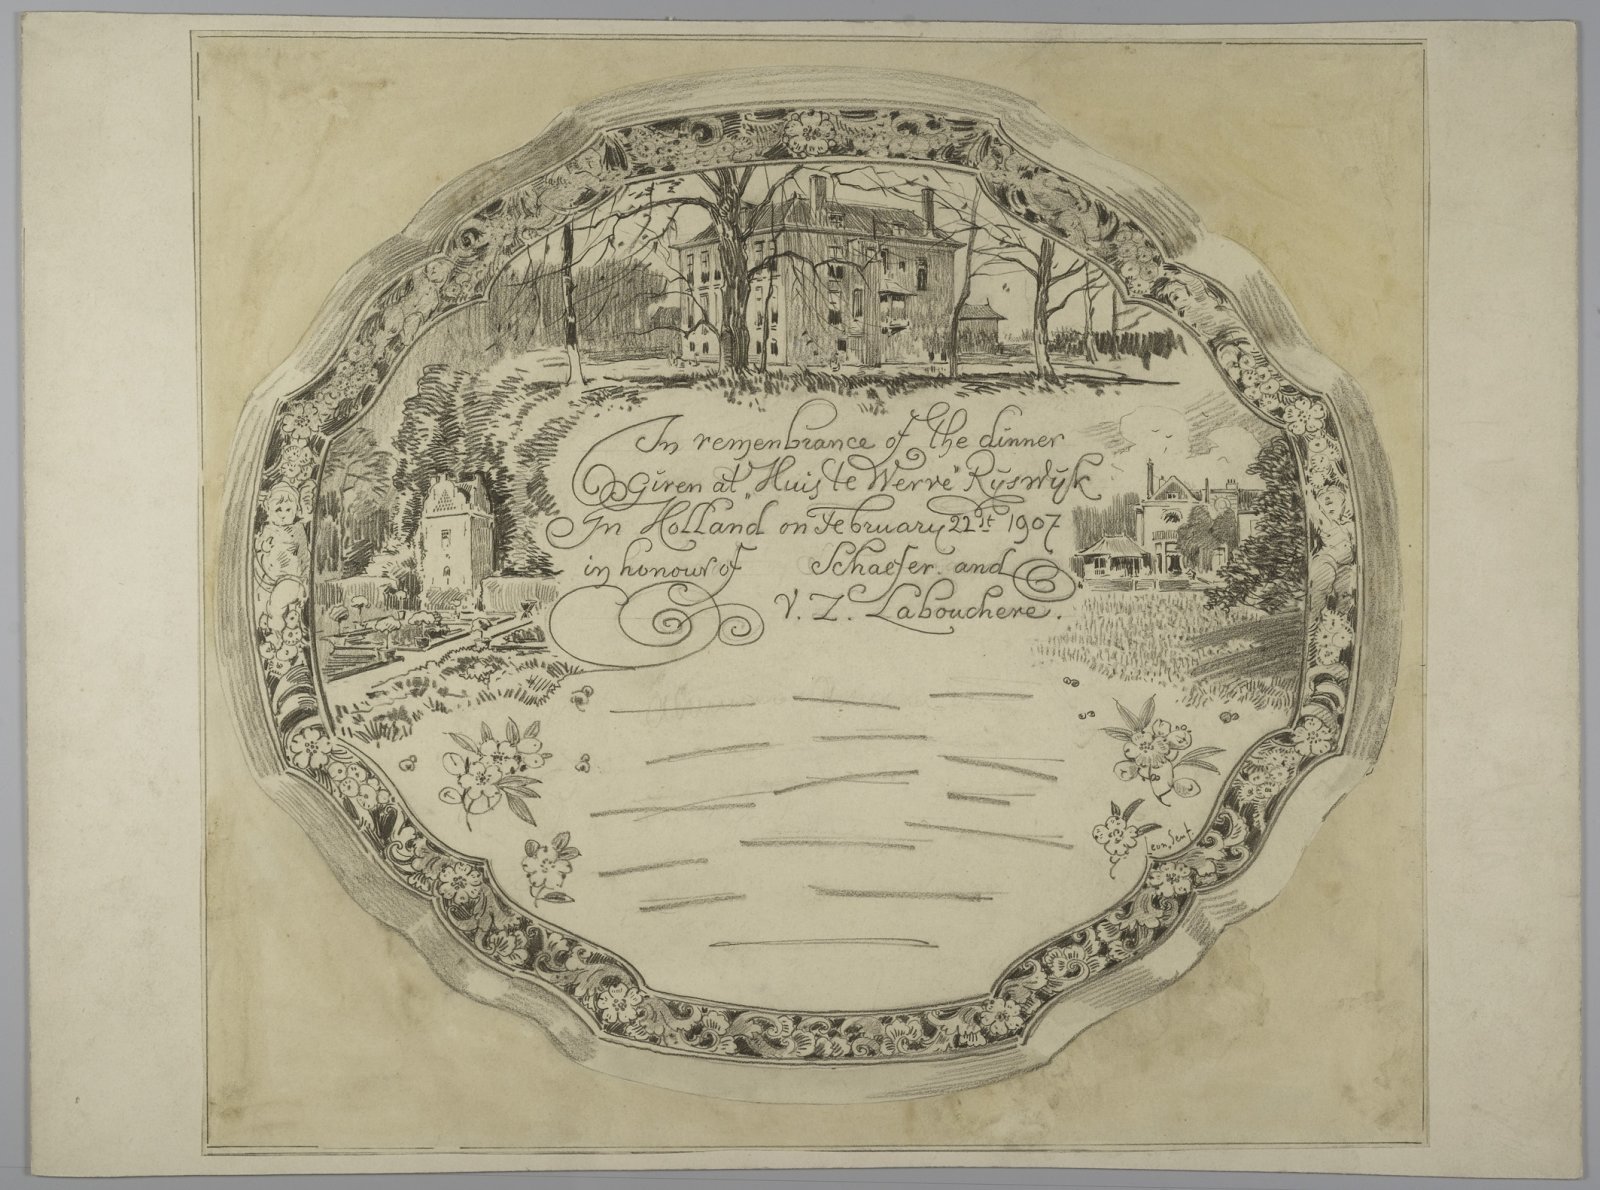 In remenbrance of the dinner
Given at "Huis te Werve" Ryswÿk
In Holland on February 22st 1907
in honour of Schaefer and
V. Z. Labouchere.
Leon. Senf.